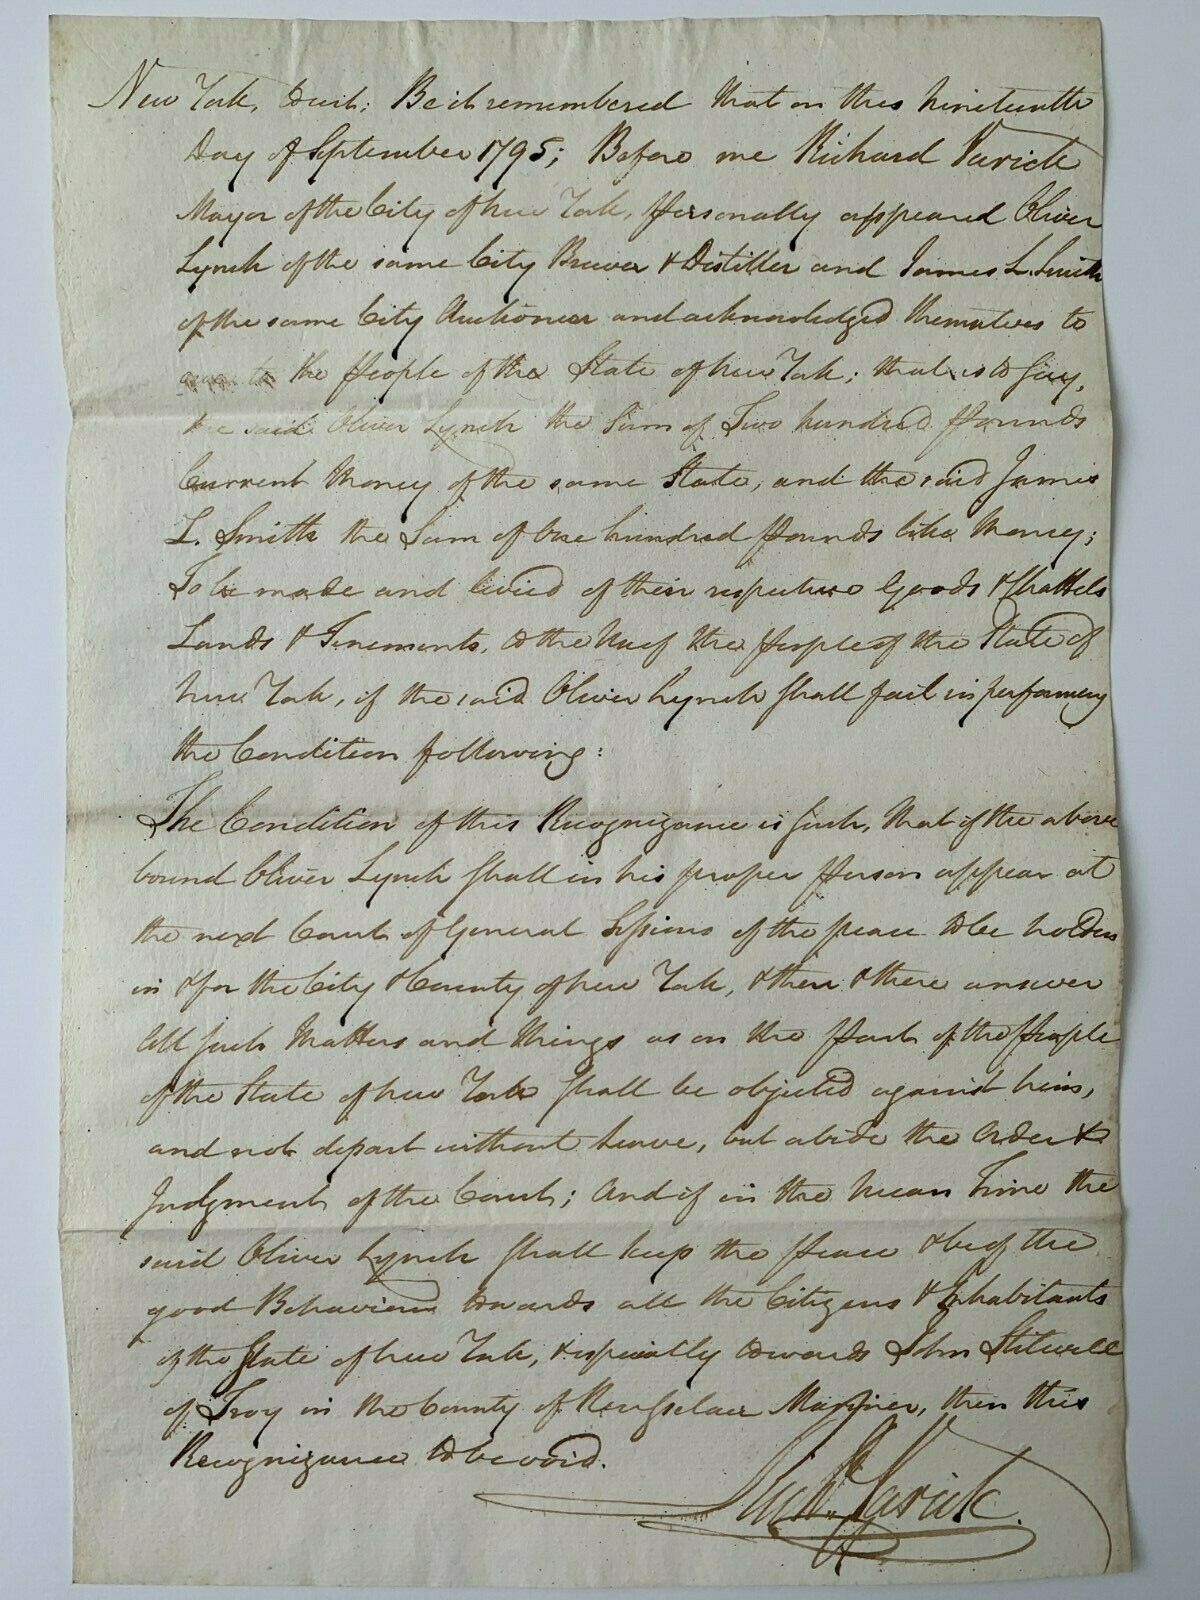 New York, Duit: Be it remembered that on this Nineteenth
Day of September 1795; Before me Richard Varick
Mayor of the City of New York, personally appeared Oliver
Lynch of the same City Brewer & Distiller and James L. Smith
of the same City Auctioneer and acknowledged themselves to
owe to the People of the State of New York; that is to say,
the said Oliver Lynch the Sum of Two hundred Pounds
Current Money of the same State, and the said James
L. Smith the Sum of One hundred Pounds like Money;
To be made and levied of their respective Goods & Chattels
Lands & Tenements, to the Use of the People of the State of
New York, if the said Oliver Lynch shall fail in performing
the Condition following:
The Condition of this Recognizance is such, that if the above
bound Oliver Lynch shall in his proper Person appear at
the next Court of General Sessions of the peace to be holden
in & for the City & County of New York, & then & there answer
All such Matters and things as on the Part of the People
of the State of New York shall be objected against him,
and not depart without leave, but abide the Order &
Judgment of the Court; And if in the Mean Time the
said Oliver Lynch shall keep the Peace & be of the
good Behaviour towards all the Citizens & Inhabitants
of the State of New York, & especially towards John Stilwell
of Troy in the County of Rensselaer Mariner, then this
Recognizance to be void.
Richd. Varick.